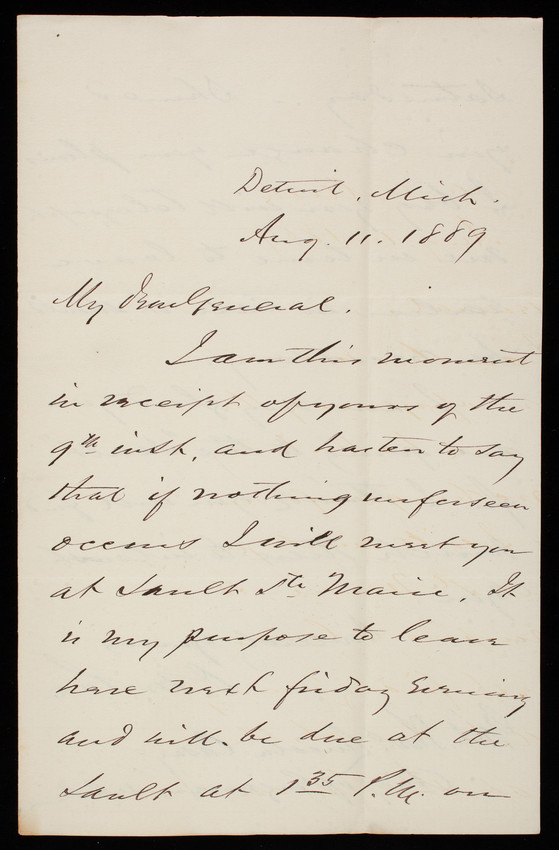 Detroit, Mich.
Aug. 11. 1889
My Dear General.
I am this moment
in receipt of yours of the
9th inst, and hasten to say
that if nothing unforseen
occurs I will meet you
at Sault Ste Marie. It
is my purpose to leave
here next friday evening
and will be due at the
Sault at 1 35 P.M. on